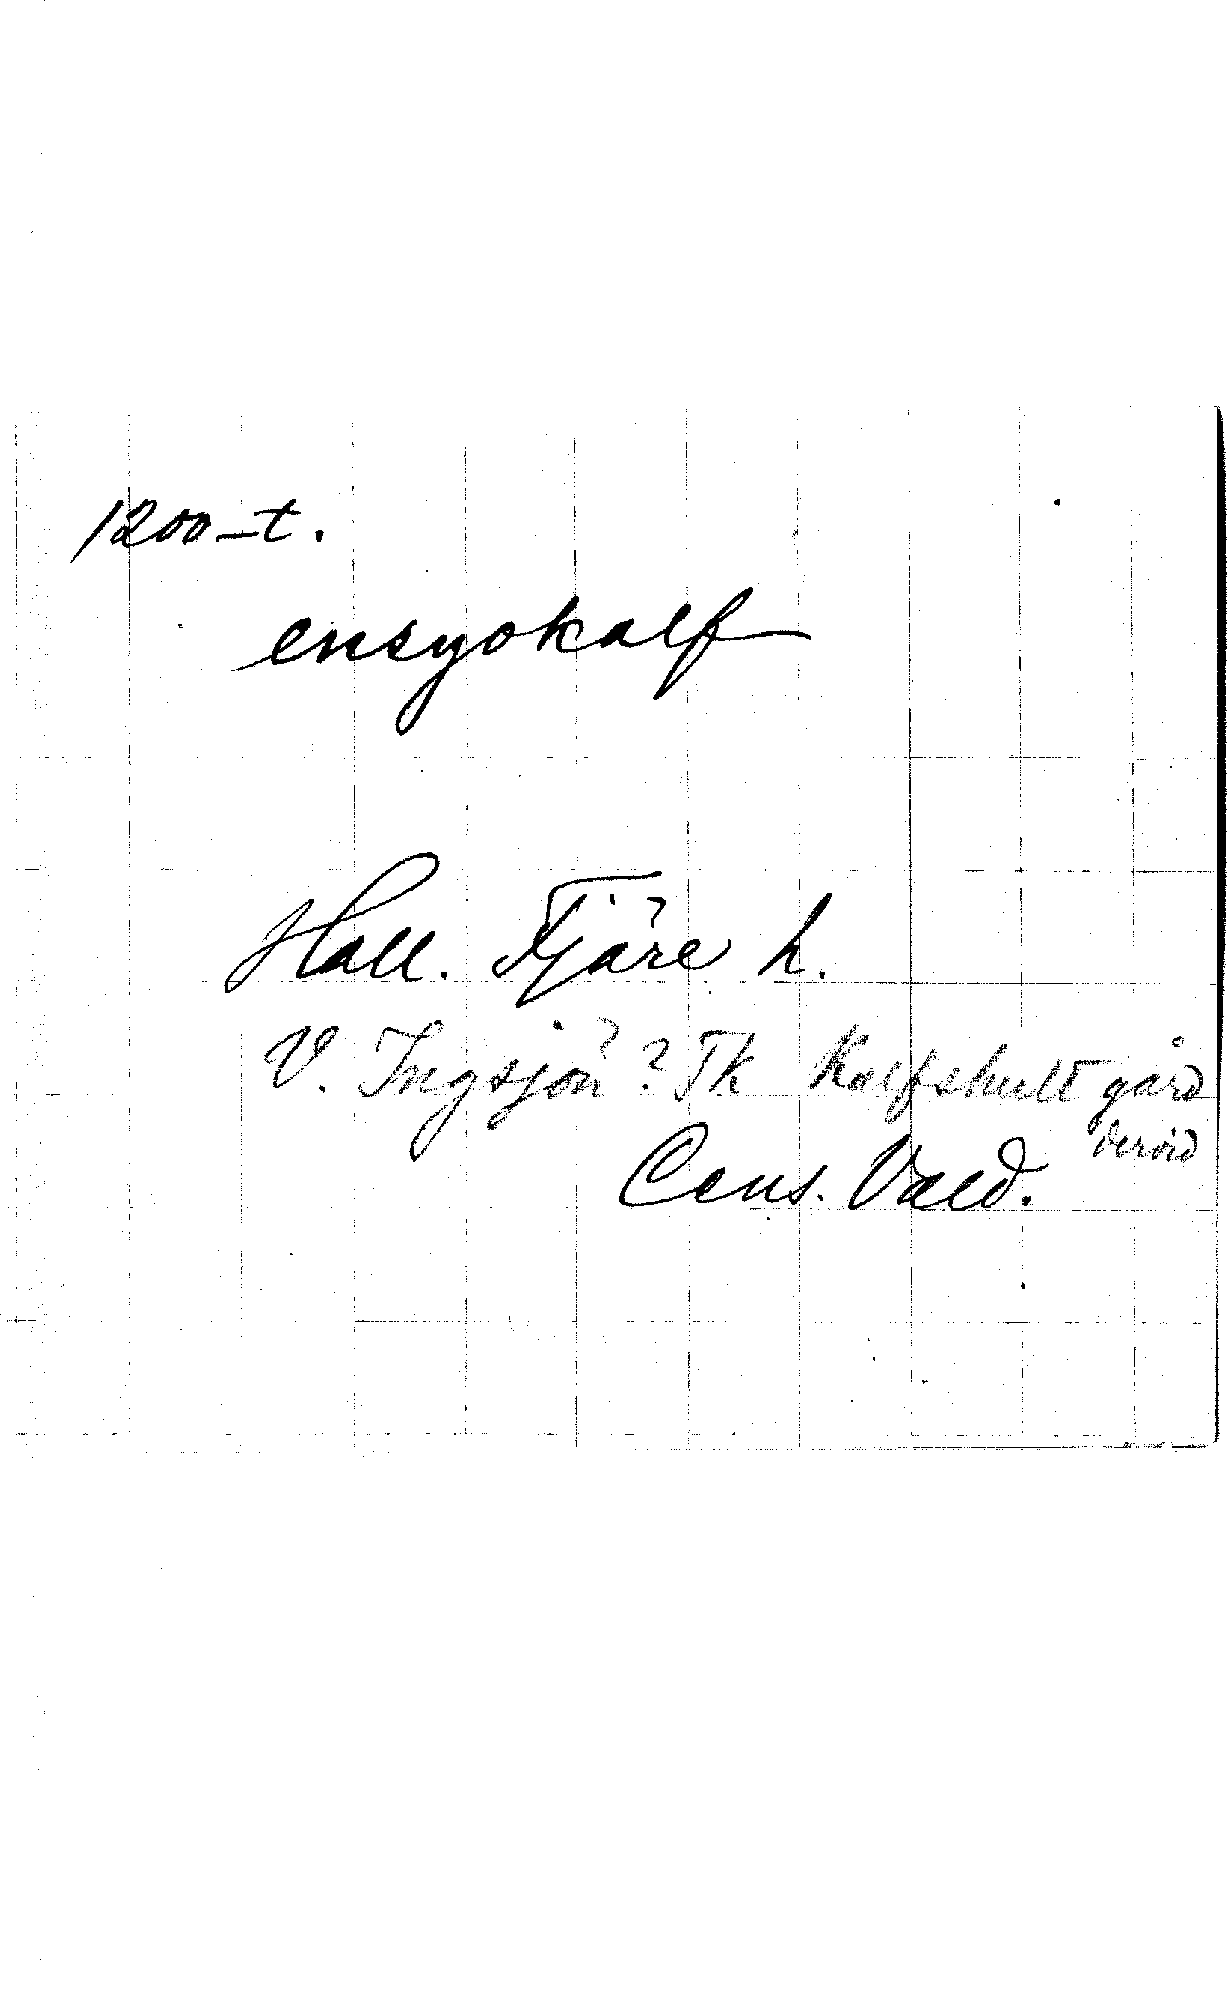 1200-t.
ensyokalf
Hall. Fjäre h.
V. Ingsjön? Tk Kalfshult gård
dervid
Cens. Vald.